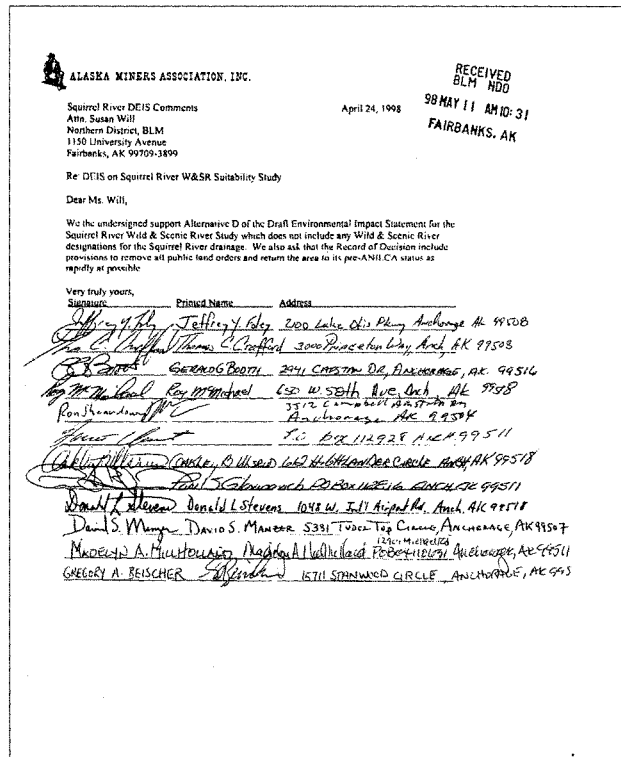 ALASKA MINERS ASSOCIATION, INC.
RECEIVED
BLM NDO
98 MAY 11 AM 10:31
FAIRBANKS, AK
Squirrel River DEIS Comments
April 24, 1998
Attn. Susan Will
Northern District, BLM
1150 University Avenue
Fairbanks, AK 99709-3899
Re: DEIS on Squirrel River W&SR Suitability Study
Dear Ms. Will,
We the undersigned support Alternative D of the Draft Environmental Impact Statement for the
Squirrel River Wild & Scenic River Study which does not include any Wild & Scenic River
designations for the Squirrel River drainage. We also ask that the Record of Decision include
provisions to remove all public land orders and return the area to its pre-ANILCA status as
rapidly as possible
Very truly yours,
Signature Printed Name Address
Jeffrey Y. Foley 2100 Lake Otis Pkwy Anchorage AK 99508
Thomas C Crafford 3000 Princeton Way, Anch, AK 99508
GERALD G BOOTH 2941 DR, ANCHORAGE, AK. 99516
Roy McMichael Roy McMichael 650 W. 58th Ave, Anch, AK 99518
Ron Sheardown 3512 Campbell Airstrip Rd
Anchorage AK 99504
P.O. Box 112928 Anch. 99511
OAKLEY B WILSON HIGHLANDER CIRCLE ANCH AK 99518
Paul S PO BOX ANCH, AK 99511
Donald L Stevens Donald L Stevens 1048 W. Int'l Airport Rd. Anch. AK 99518
David S. Manzer DAVID S. MANZER 5331 TUDOR TOP CIRCLE, ANCHORAGE, AK 99507
MADELYN A. MILLHOLLAND Madelyn A Millholland PO Box Anchorage, AK 99511
GREGORY A. BEISCHER 15711 STANWOOD CIRCLE ANCHORAGE, AK